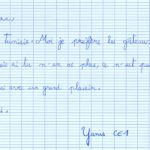 Tunisie. Moi je préfère les gâteaux
si tu n'en as plus, ce n'est pas
avec un grand plaisir.
Yanis CE1